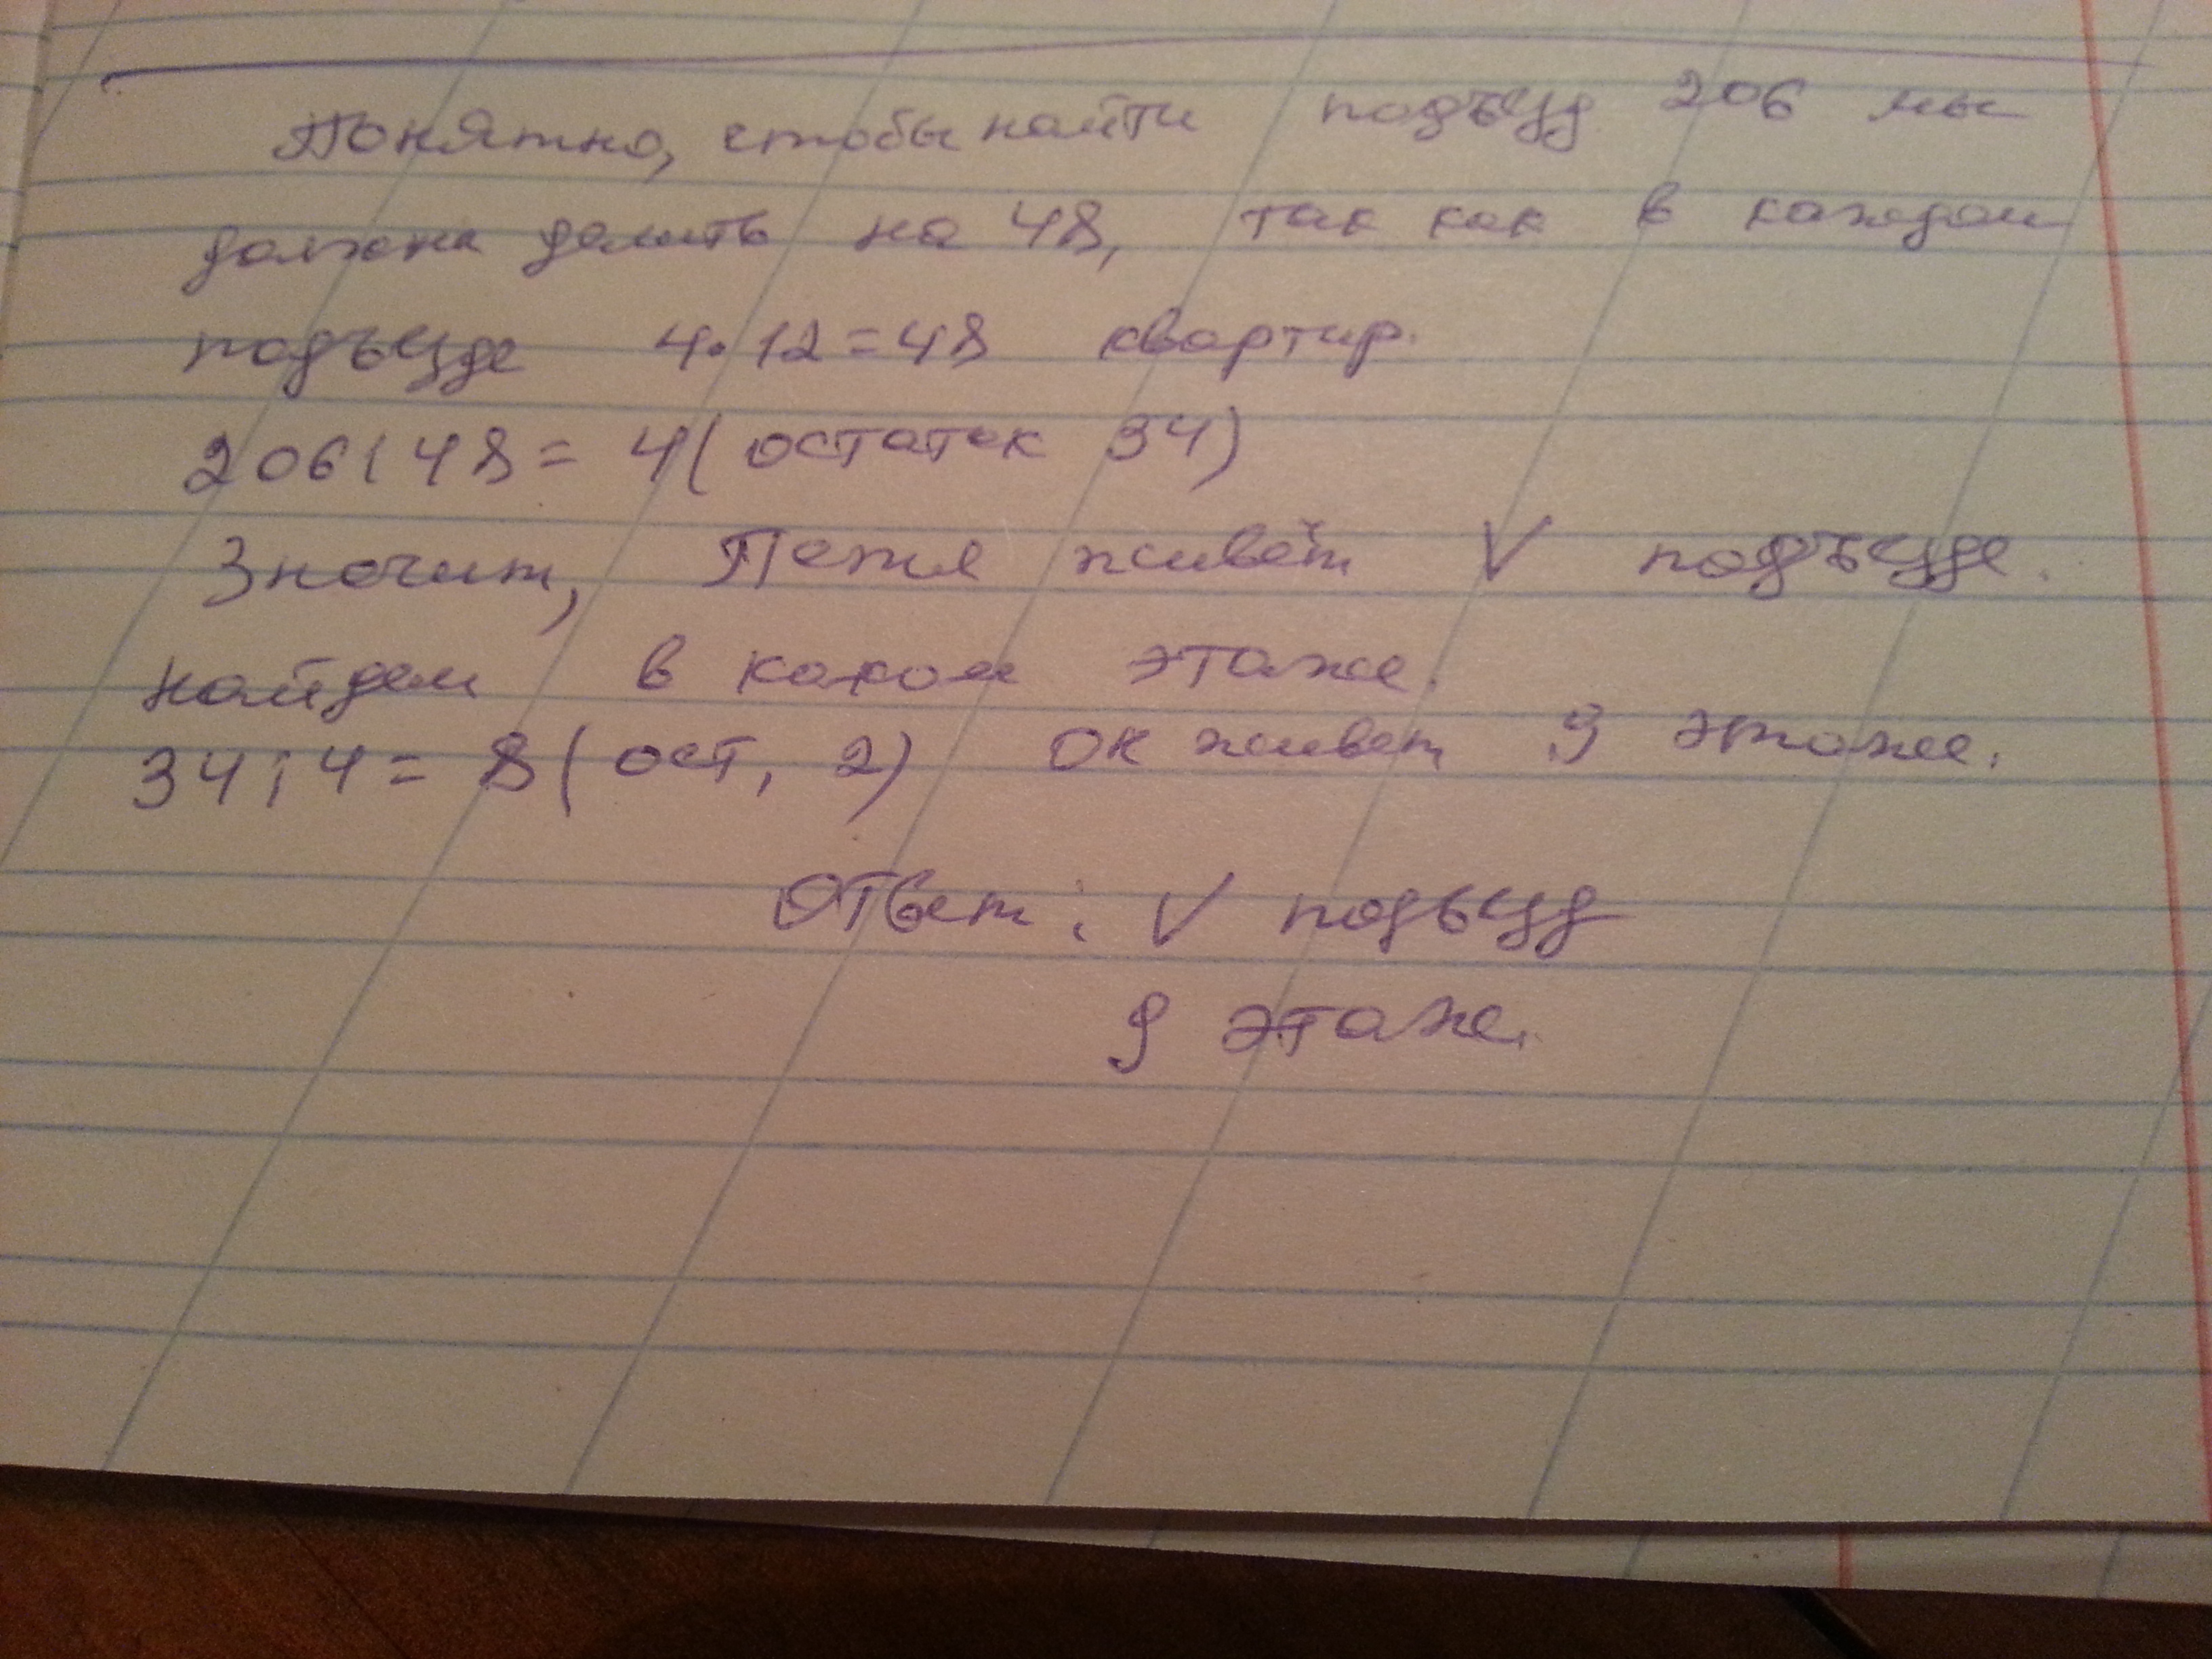 Понятно, чтобы найти подъезд 206 мы
должны делить на 48, так как в каждом
подъезде 4·12=48 квартир.
206:48= 4(остаток 34)
Значит, Петя живёт V подъезде.
найдем в каком этаже.
34:4= 8(ост, 2) ОК живет 9 этаже.
Ответ: V подьезд
9 этаже.